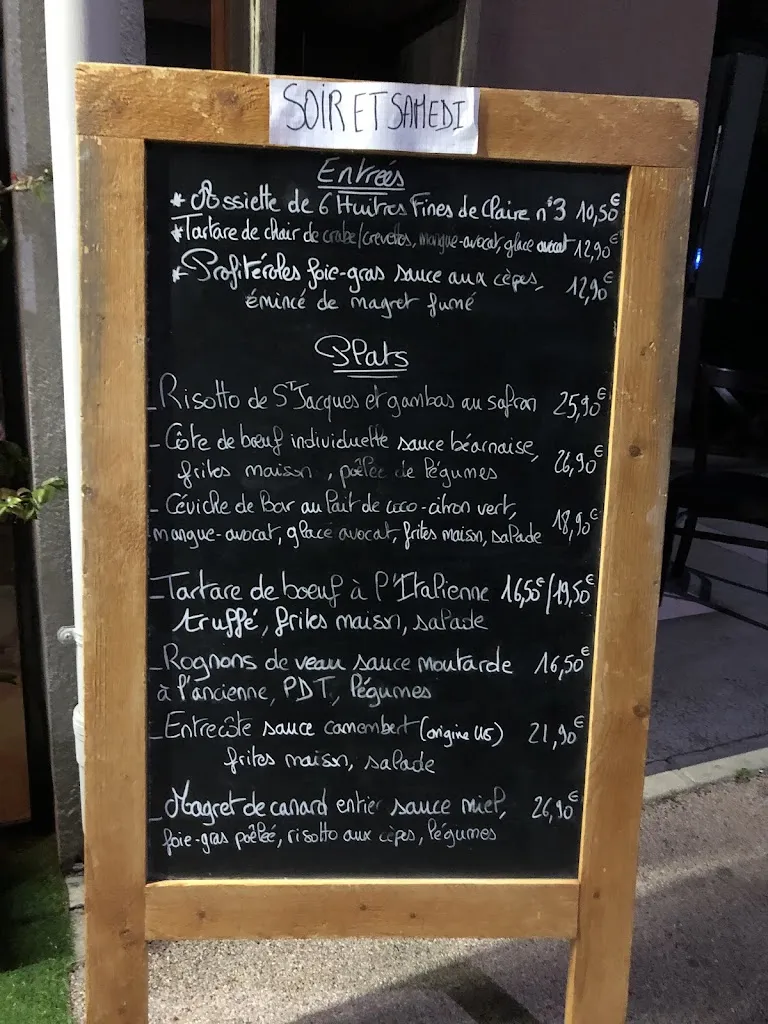 SOIR ET SAMEDI
Entrées
* Assiette de 6 Huitres Fines de Claire n°3 10,50€
* Tartare de chair de crabe/crevettes, mangue-avocat, glace avocat 12,90€
* Profitéroles foie-gras sauce aux cèpes, 12,90€
émincé de magret fumé
Plats
- Risotto de St Jacques et gambas au safran 25,90€
- Côte de bœuf individuelle sauce béarnaise, 26,90€
frites maison, poêlée de légumes
- Céviche de Bar au lait de coco-citron vert, 18,90€
mangue-avocat, glace avocat, frites maison, salade
- Tartare de boeuf à l'Italienne 16,50€/19,50€
truffé, frites maison, salade
- Rognons de veau sauce moutarde 16,50€
à l'ancienne, PDT, légumes
- Entrecôte sauce camembert (origine US) 21,90€
frites maison, salade
- Magret de canard entier sauce miel, 26,90€
foie-gras poêlée, risotto aux cèpes, légumes